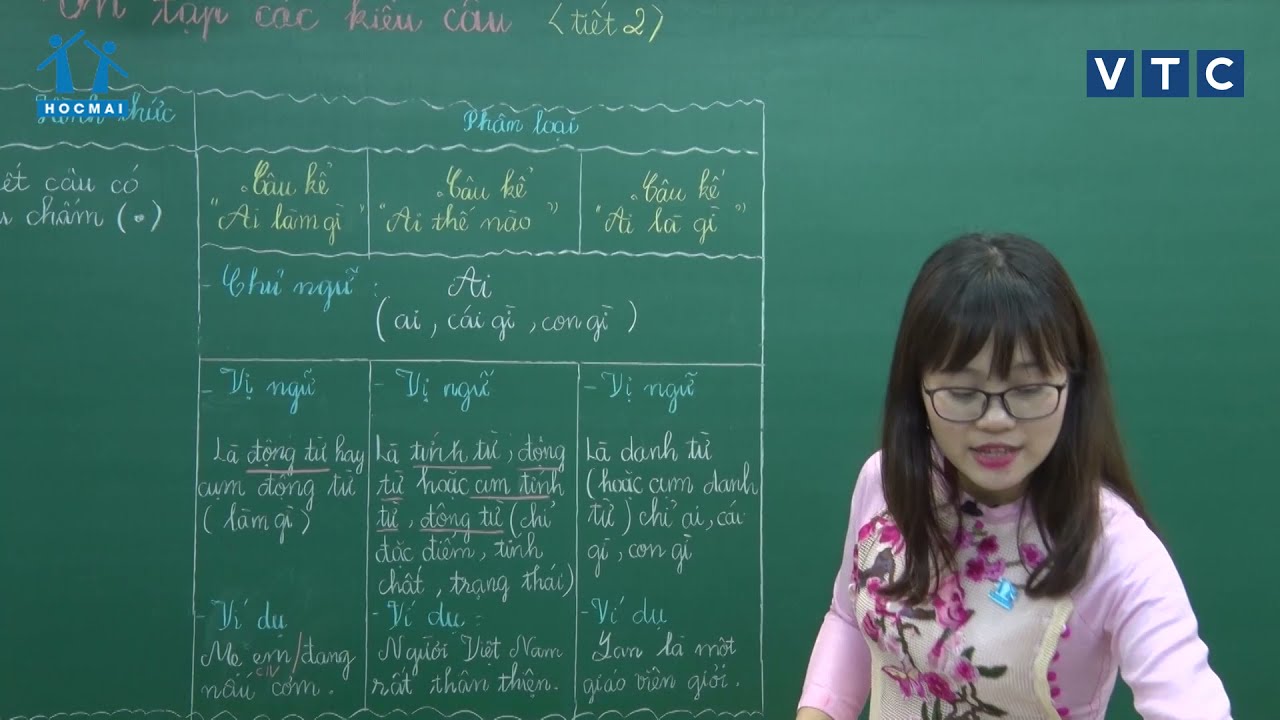 Ôn tập các kiểu câu <tiết 2>
HOCMAI
VTC
Hình thức
Phân loại
ết câu có
u chấm (.)
. Câu kể
"Ai làm gì"
. Câu kể
"Ai thế nào"
. Câu kể
"Ai là gì"
- Chủ ngữ : Ai
(ai, cái gì, con gì)
- Vị ngữ
Là động từ hay
cụm động từ
(làm gì)
- Ví dụ
Mẹ em/đang
CN
nấu cơm.
- Vị ngữ
Là tính từ, động
từ hoặc cụm tính
từ, động từ (chỉ
đặc điểm, tính
chất, trạng thái)
- Ví dụ:
Người Việt Nam
rất thân thiện.
- Vị ngữ
Là danh từ
(hoặc cụm danh
từ) chỉ ai, cái
gì, con gì
- Ví dụ
Lan là một
giáo viên giỏi.